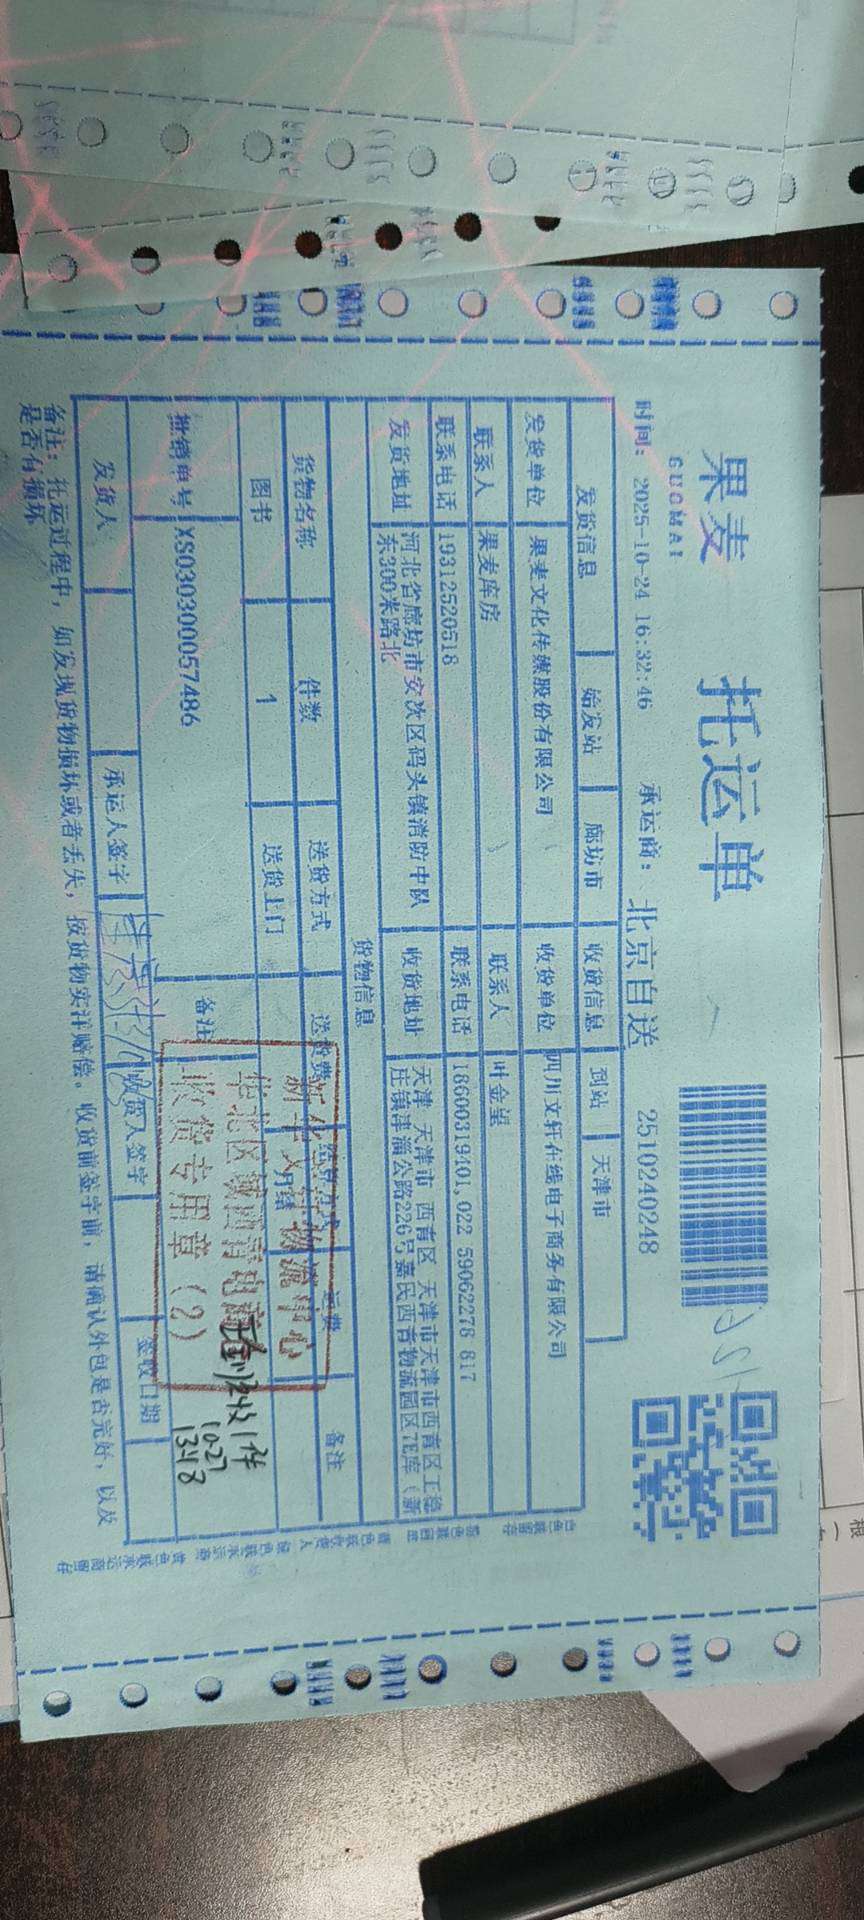 果麦 托运单
GUOMAI
时间: 2025-10-24 16:32:46 承运商: 北京自送 2510240248
发货信息 始发站 廊坊市 收货信息 到站 天津市
发货单位 果麦文化传媒股份有限公司 收货单位 四川文轩在线电子商务有限公司
联系人 果麦库房 联系人 叶金望
联系电话 19312520518 联系电话 18600319401,022 59062278 817
发货地址 河北省廊坊市安次区码头镇消防中队东300米路北 收货地址 天津 天津市 西青区 天津市天津市西青区王稳庄镇津淄公路226号嘉民西青物流园区7E库（新
货物信息
货物名称 件数 送货方式 送货费 结算方式 运费 备注
图书 1 送货上门 月结
批销单号 XS030300057486 备注
新华文轩物流中心
华北区域西青电商
收货专用章（2）
实收1件
10-27
13:48
发货人 承运人签字 收货人签字 签收日期
备注: 托运过程中, 如发现货物损坏或者丢失, 按货物实洋赔偿。收货前签字前, 请确认外包是否完好, 以及
是否有损坏